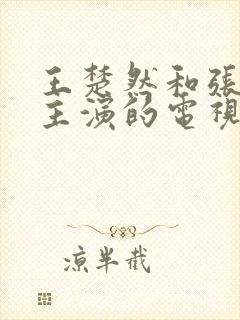 王楚然和張
主演的電視
涼半截